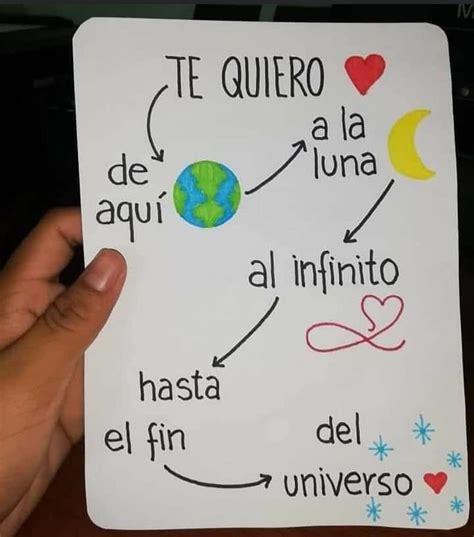 TE QUIERO
de aquí
a la luna
al infinito
hasta el fin
del universo